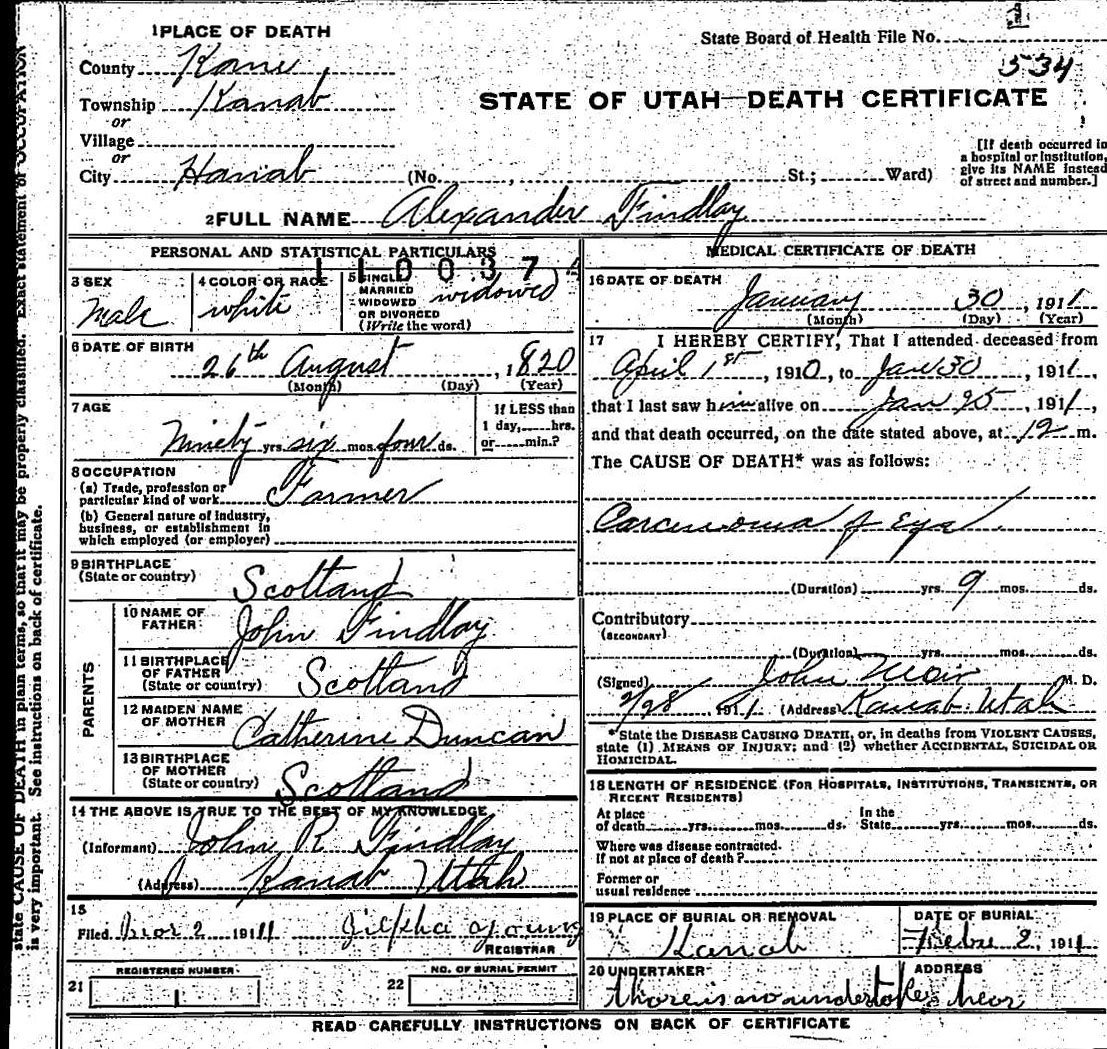 1
State Board of Health File No.
534
1 PLACE OF DEATH
County Kane
Township Kanab
or
Village
or
City Kanab (No. , St.; Ward)
STATE OF UTAH—DEATH CERTIFICATE
[If death occurred in
a hospital or institution,
give its NAME instead
of street and number.]
2 FULL NAME Alexander Findlay
PERSONAL AND STATISTICAL PARTICULARS
1100374
3 SEX
Male
4 COLOR OR RACE
white
5 SINGLE
MARRIED
WIDOWED
OR DIVORCED
(Write the word)
widowed
6 DATE OF BIRTH
26th August , 1820
(Month) (Day) (Year)
7 AGE
Ninety yrs. six mos. four ds.
If LESS than
1 day, hrs.
or min.?
8 OCCUPATION
(a) Trade, profession or
particular kind of work Farmer
(b) General nature of industry,
business, or establishment in
which employed (or employer)
9 BIRTHPLACE
(State or country)
Scotland
PARENTS
10 NAME OF
FATHER
John Findlay
11 BIRTHPLACE
OF FATHER
(State or country)
Scotland
12 MAIDEN NAME
OF MOTHER
Catherine Duncan
13 BIRTHPLACE
OF MOTHER
(State or country)
Scotland
14 THE ABOVE IS TRUE TO THE BEST OF MY KNOWLEDGE
(Informant) John R Findlay
(Address) Kanab Utah
15
Filed 2 1911 Zilpha Young
REGISTRAR
REGISTERED NUMBER
21 1
NO. OF BURIAL PERMIT
22
MEDICAL CERTIFICATE OF DEATH
16 DATE OF DEATH
January 30 , 1911
(Month) (Day) (Year)
17 I HEREBY CERTIFY, That I attended deceased from
April 1st , 1910, to Jan 30 , 1911,
that I last saw him alive on Jan 25 , 1911,
and that death occurred, on the date stated above, at 12 m.
The CAUSE OF DEATH* was as follows:
Carcinoma of Eye
(Duration) yrs. 9 mos. ds.
Contributory
(SECONDARY)
(Duration) yrs. mos. ds.
(Signed) John M. D.
2/28 , 1911 (Address) Kanab Utah
*State the DISEASE CAUSING DEATH, or, in deaths from VIOLENT CAUSES,
state (1) MEANS OF INJURY; and (2) whether ACCIDENTAL, SUICIDAL OR
HOMICIDAL.
18 LENGTH OF RESIDENCE (FOR HOSPITALS, INSTITUTIONS, TRANSIENTS, OR
RECENT RESIDENTS)
At place
of death yrs. mos. ds.
In the
State yrs. mos. ds.
Where was disease contracted.
If not at place of death?
Former or
usual residence
19 PLACE OF BURIAL OR REMOVAL
Kanab
DATE OF BURIAL
2, 1911
20 UNDERTAKER
ADDRESS
there is no undertaker hear
READ CAREFULLY INSTRUCTIONS ON BACK OF CERTIFICATE
state CAUSE OF DEATH in plain terms, so that it may be properly classified. Exact statement of OCCUPATION
is very important. See instructions on back of certificate.